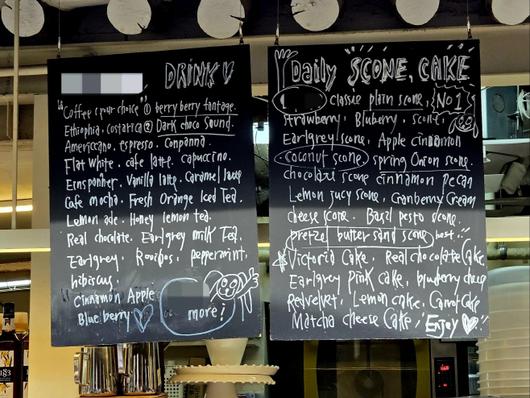 DRINK♡
"Coffee your choice" ① berry berry fantage.
Ethiophia. costarica ② Dark choco Sound.
Americano. espresso. Conpanna.
Flat White. cafe latte. capuccino.
Einspanner. Vanilla latte. Caramel latte
Cafe mocha. Fresh Orange Iced Tea.
Lemon ale. Honey lemon tea.
Real chocolate. Earlgrey milk Tea.
Earlgrey. Rooibos. peppermint.
hibiscus
Cinnamon Apple
Blueberry♡
more!
Daily SCONE, CAKE
classic plain scone, No 1
strawberry, Blueberry, scone
Earlgrey scone, Apple cinnamon
coconut scone, spring Onion scone.
chocolate scone cinnamon pecan
Lemon jucy scone, Cranberry Cream
cheese scone. Bazil pesto scone.
pretzel butter sand scone best!!
Victoria Cake, Real chocolate Cake,
Earlgrey pink cake, blueberry cheese
Redvelvet, Lemon cake, Carrot cake
Matcha cheese Cake, "Enjoy ♡